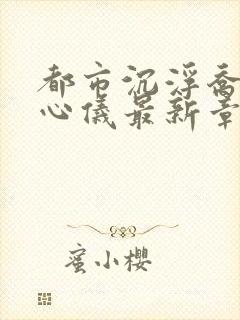 都市沉浮乔
心儀最新章
蜜小櫻